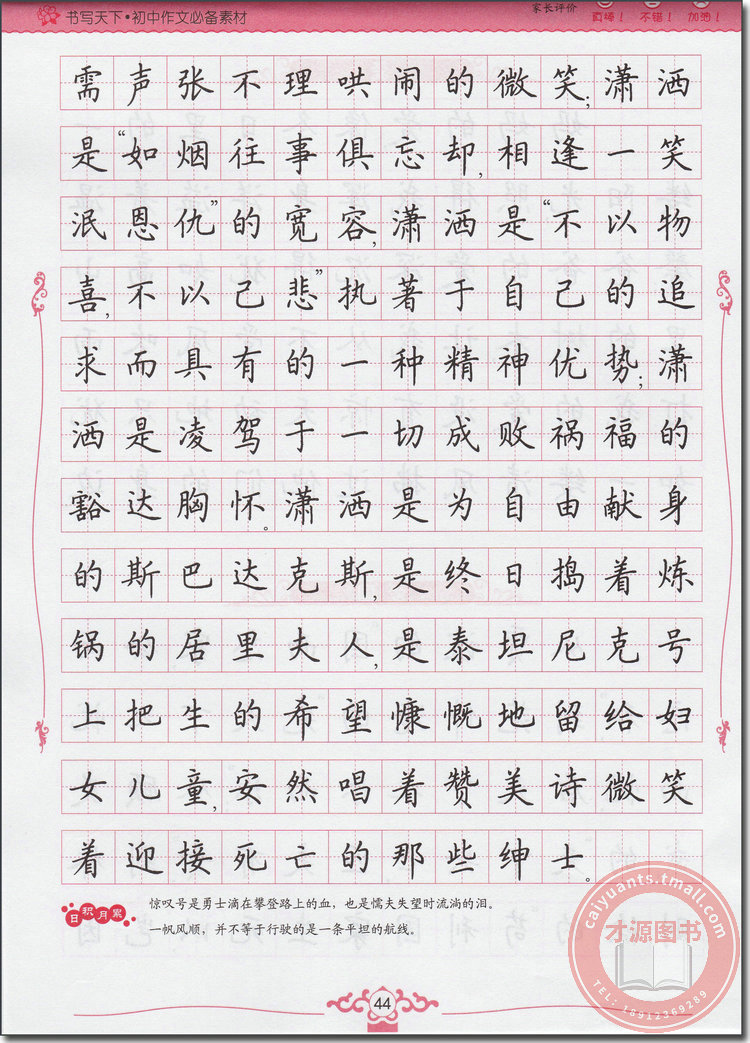 书写天下·初中作文必备素材
家长评价
真棒！ 不错！ 加油！
需声张不理哄闹的微笑;潇洒
是“如烟往事俱忘却,相逢一笑
泯恩仇”的宽容,潇洒是“不以物
喜,不以己悲”执著于自己的追
求而具有的一种精神优势;潇
洒是凌驾于一切成败祸福的
豁达胸怀。潇洒是为自由献身
的斯巴达克斯,是终日捣着炼
锅的居里夫人,是泰坦尼克号
上把生的希望慷慨地留给妇
女儿童,安然唱着赞美诗微笑
着迎接死亡的那些绅士。
日积月累
惊叹号是勇士滴在攀登路上的血，也是懦夫失望时流淌的泪。
一帆风顺，并不等于行驶的是一条平坦的航线。
44
caiyuants.tmall.com
才源图书
TEL: 18912369289